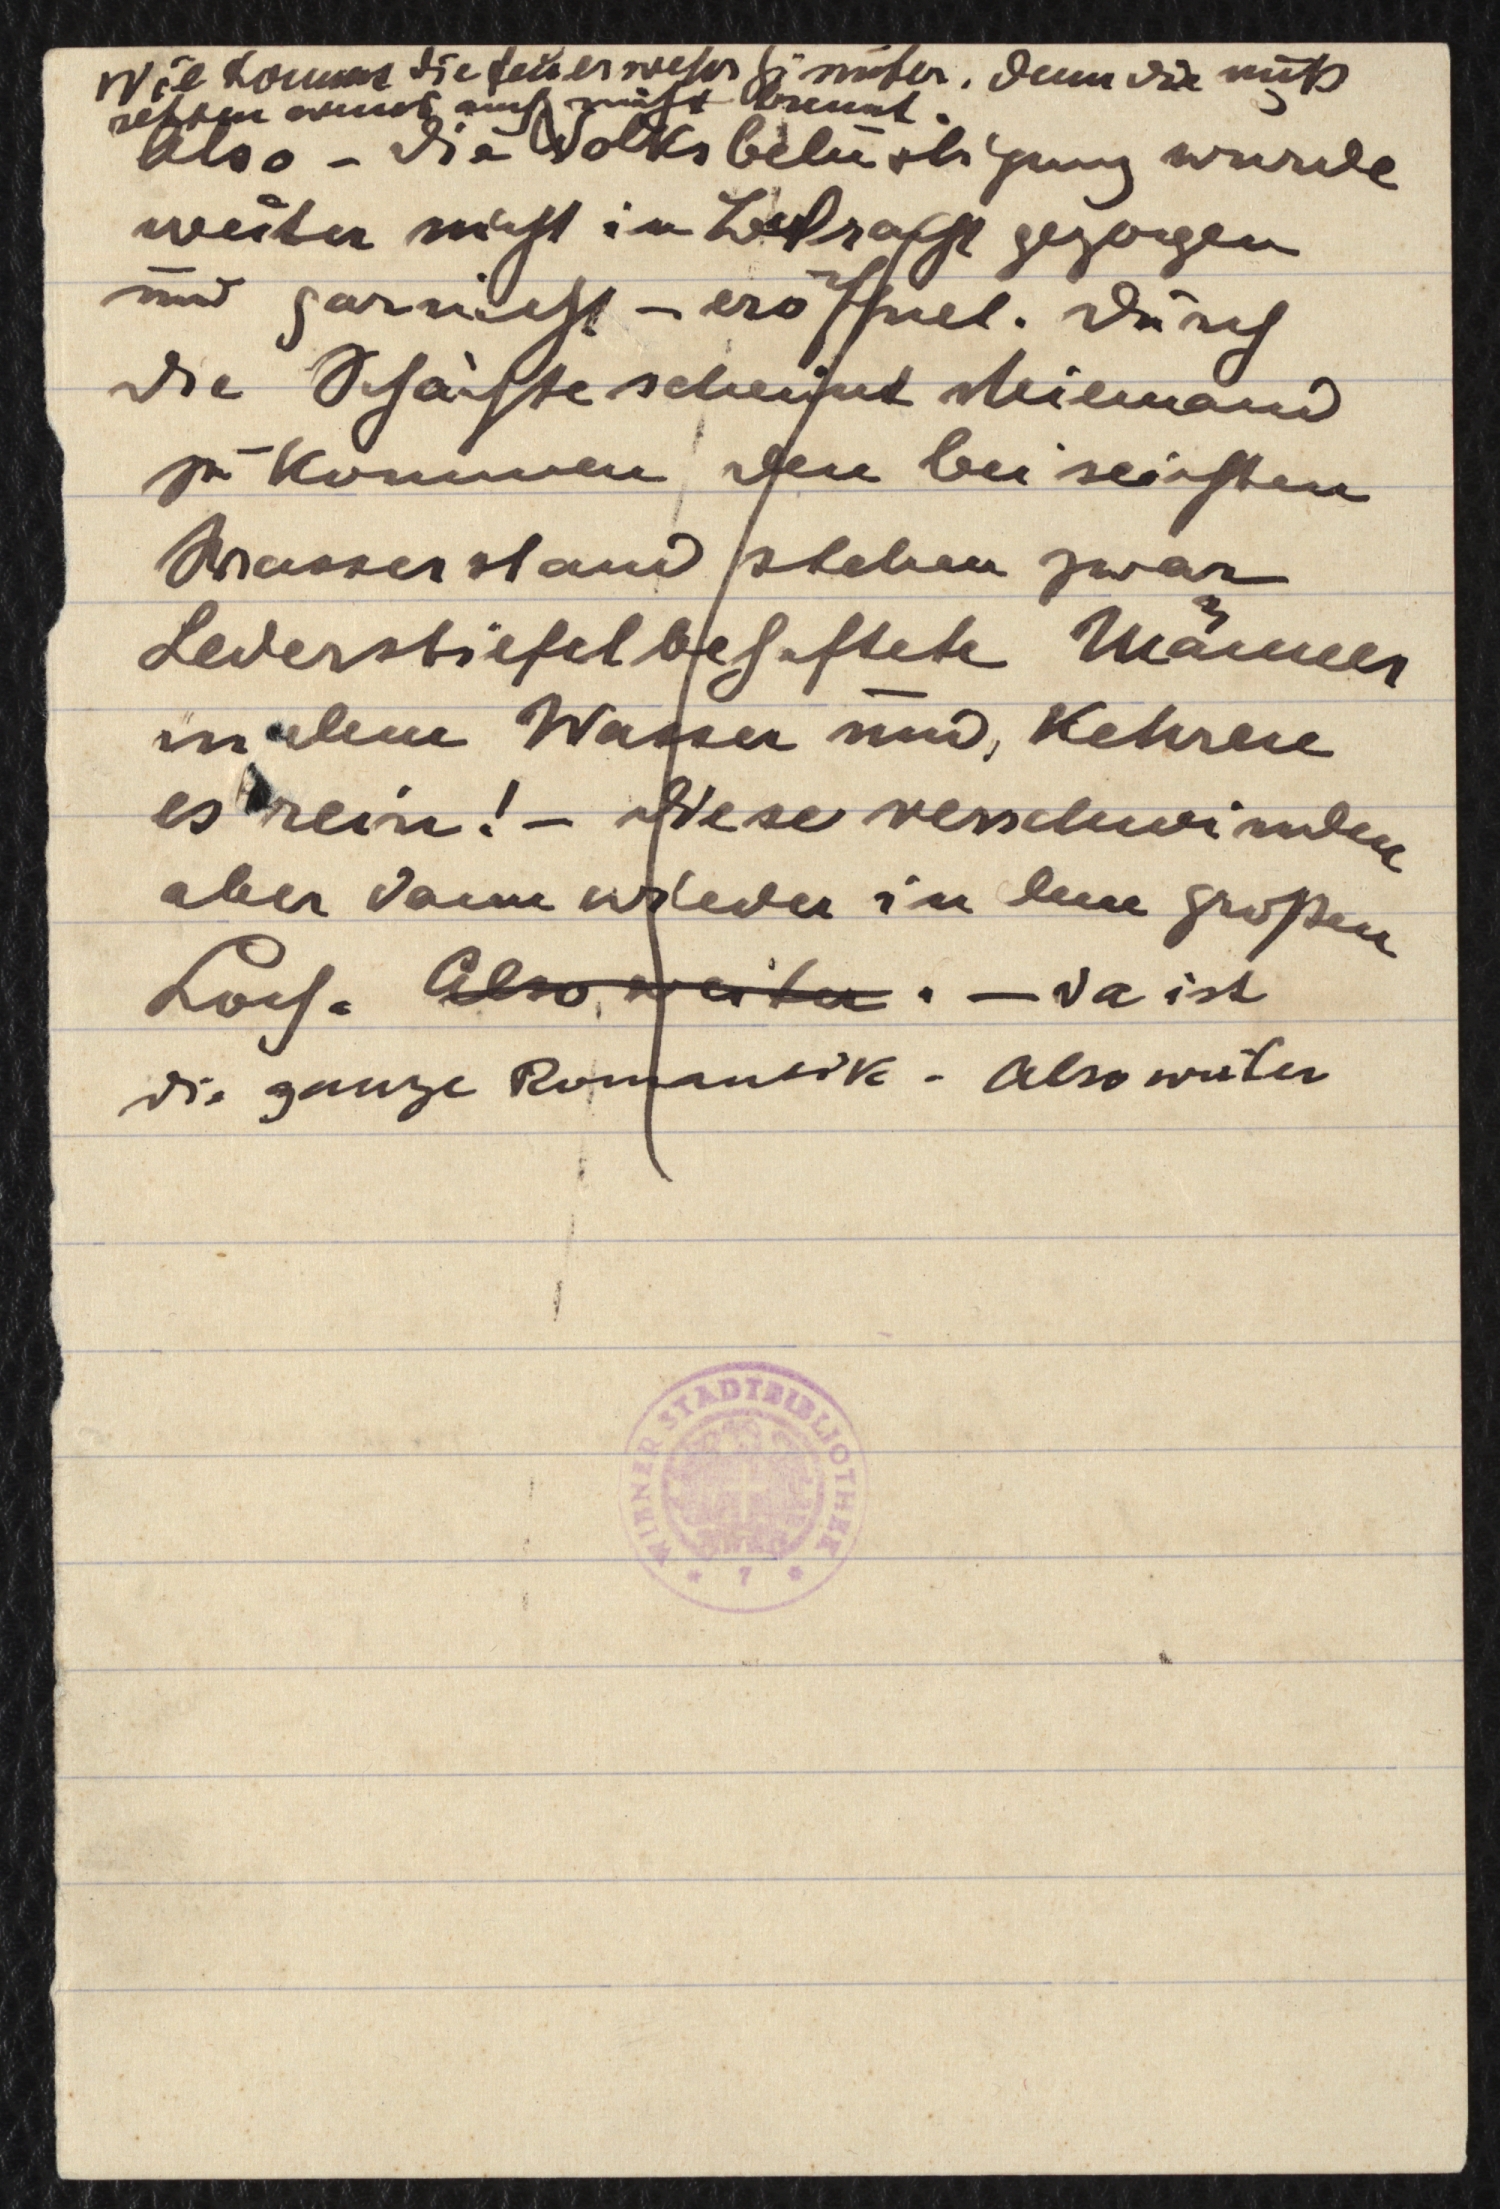 Wie kommt die Feuerwehr hinüber. Denn die muß
retten wenns auch nicht brennt.
Also – die Volksbelustigung wurde
weiter nicht in Betracht gezogen
und garnicht – eröffnet. Durch
die Schächte scheint Niemand
zu kommen den bei seichten
Wasserstand stehen zwar
Lederstiefelbehaftete Männer
in dem Wasser und, Kehren
es rein! – Diese verschwinden
aber dann wieder in dem großen
Loch. Also weiter. – da ist
die ganze Romantik – Also weiter
WIENER STADTBIBLIOTHEK
* 7 *